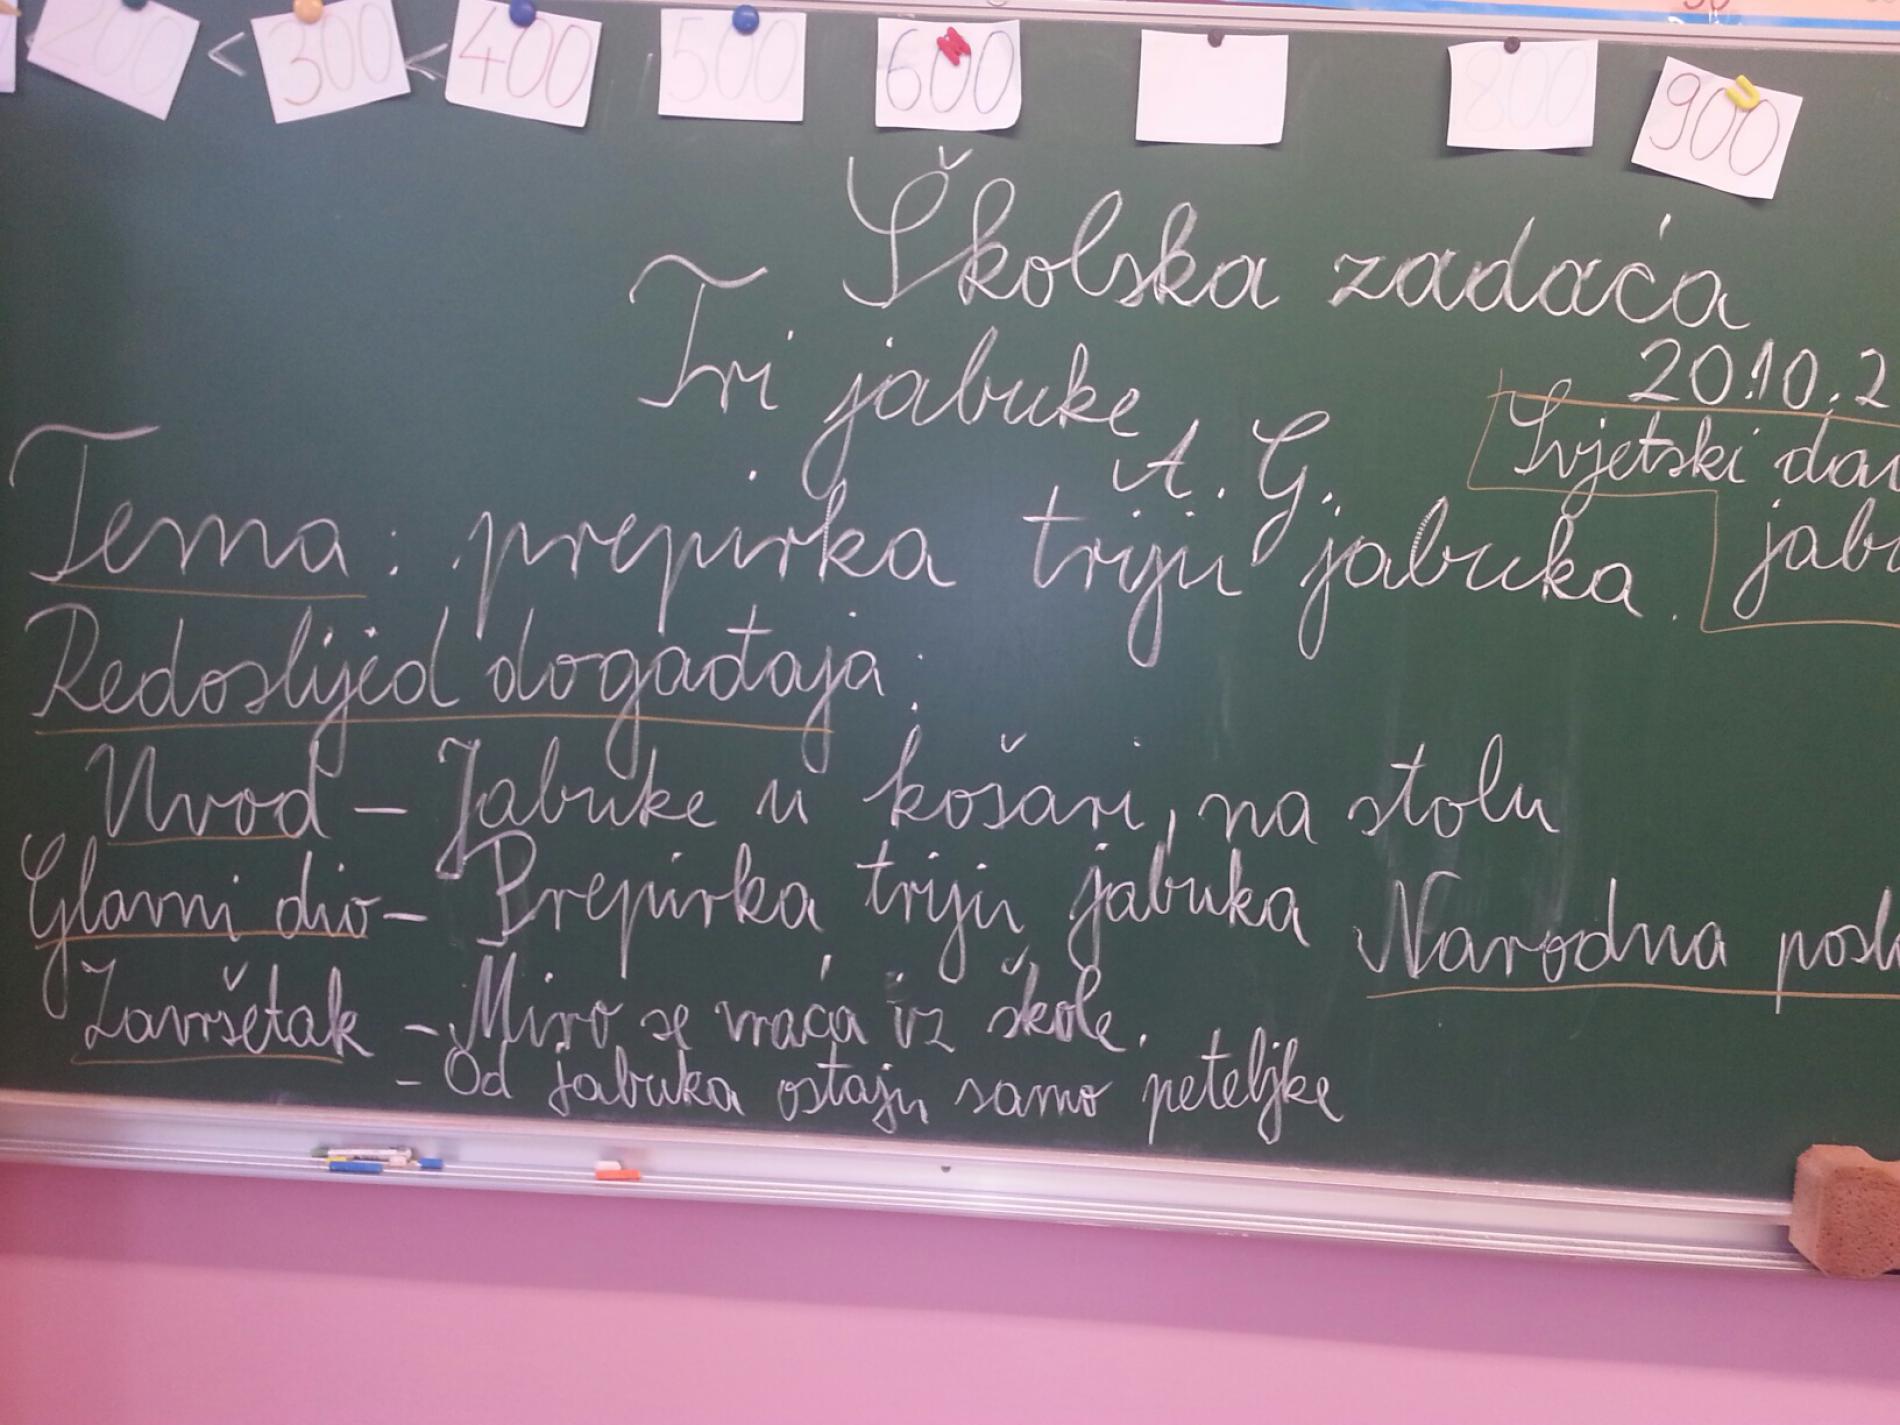 200 < 300 < 400 500 600 800 900
Školska zadaća
Tri jabuke
20.10.2
A. G.
Svjetski dan
jabu
Tema: prepirka triju jabuka.
Redoslijed događaja:
Uvod – Jabuke u košari, na stolu
Glavni dio – Prepirka triju jabuka
Narodna poslo
Završetak – Miro se vraća iz škole.
– Od jabuka ostaju samo peteljke